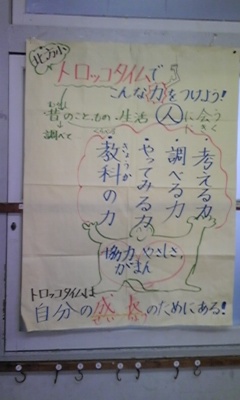 北方小
トロッコタイムで
こんな力をつけよう!
むかし
昔のこと、もの、生活 人に会う
調べて きく
考える力
・調べる力
・やってみる力
きょうか
・教科の力
協力 やさしさ
がまん
トロッコタイムは
自分の成長のためにある!
せい ちょう